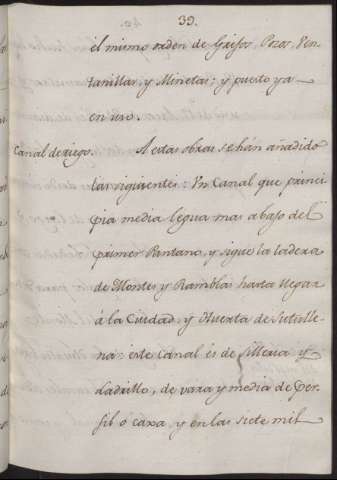 39.
el mismo orden de Grifos, Pozos, Ven-
tanillas, y Minetas; y puesto ya
en uso.
Canal de riego. A estas obras se hán añadido
las siguientes: Vn Canal que princi
pia media legua mas abajo del
primer Pantano, y sigue la ladera
de Montes, y Ramblas hasta llegar
á la Ciudad, y Huerta de Sutulle-
na: este Canal és de Sillería y
Ladrillo, de vara y media de Per-
fil ó caxa, y en las siete mil